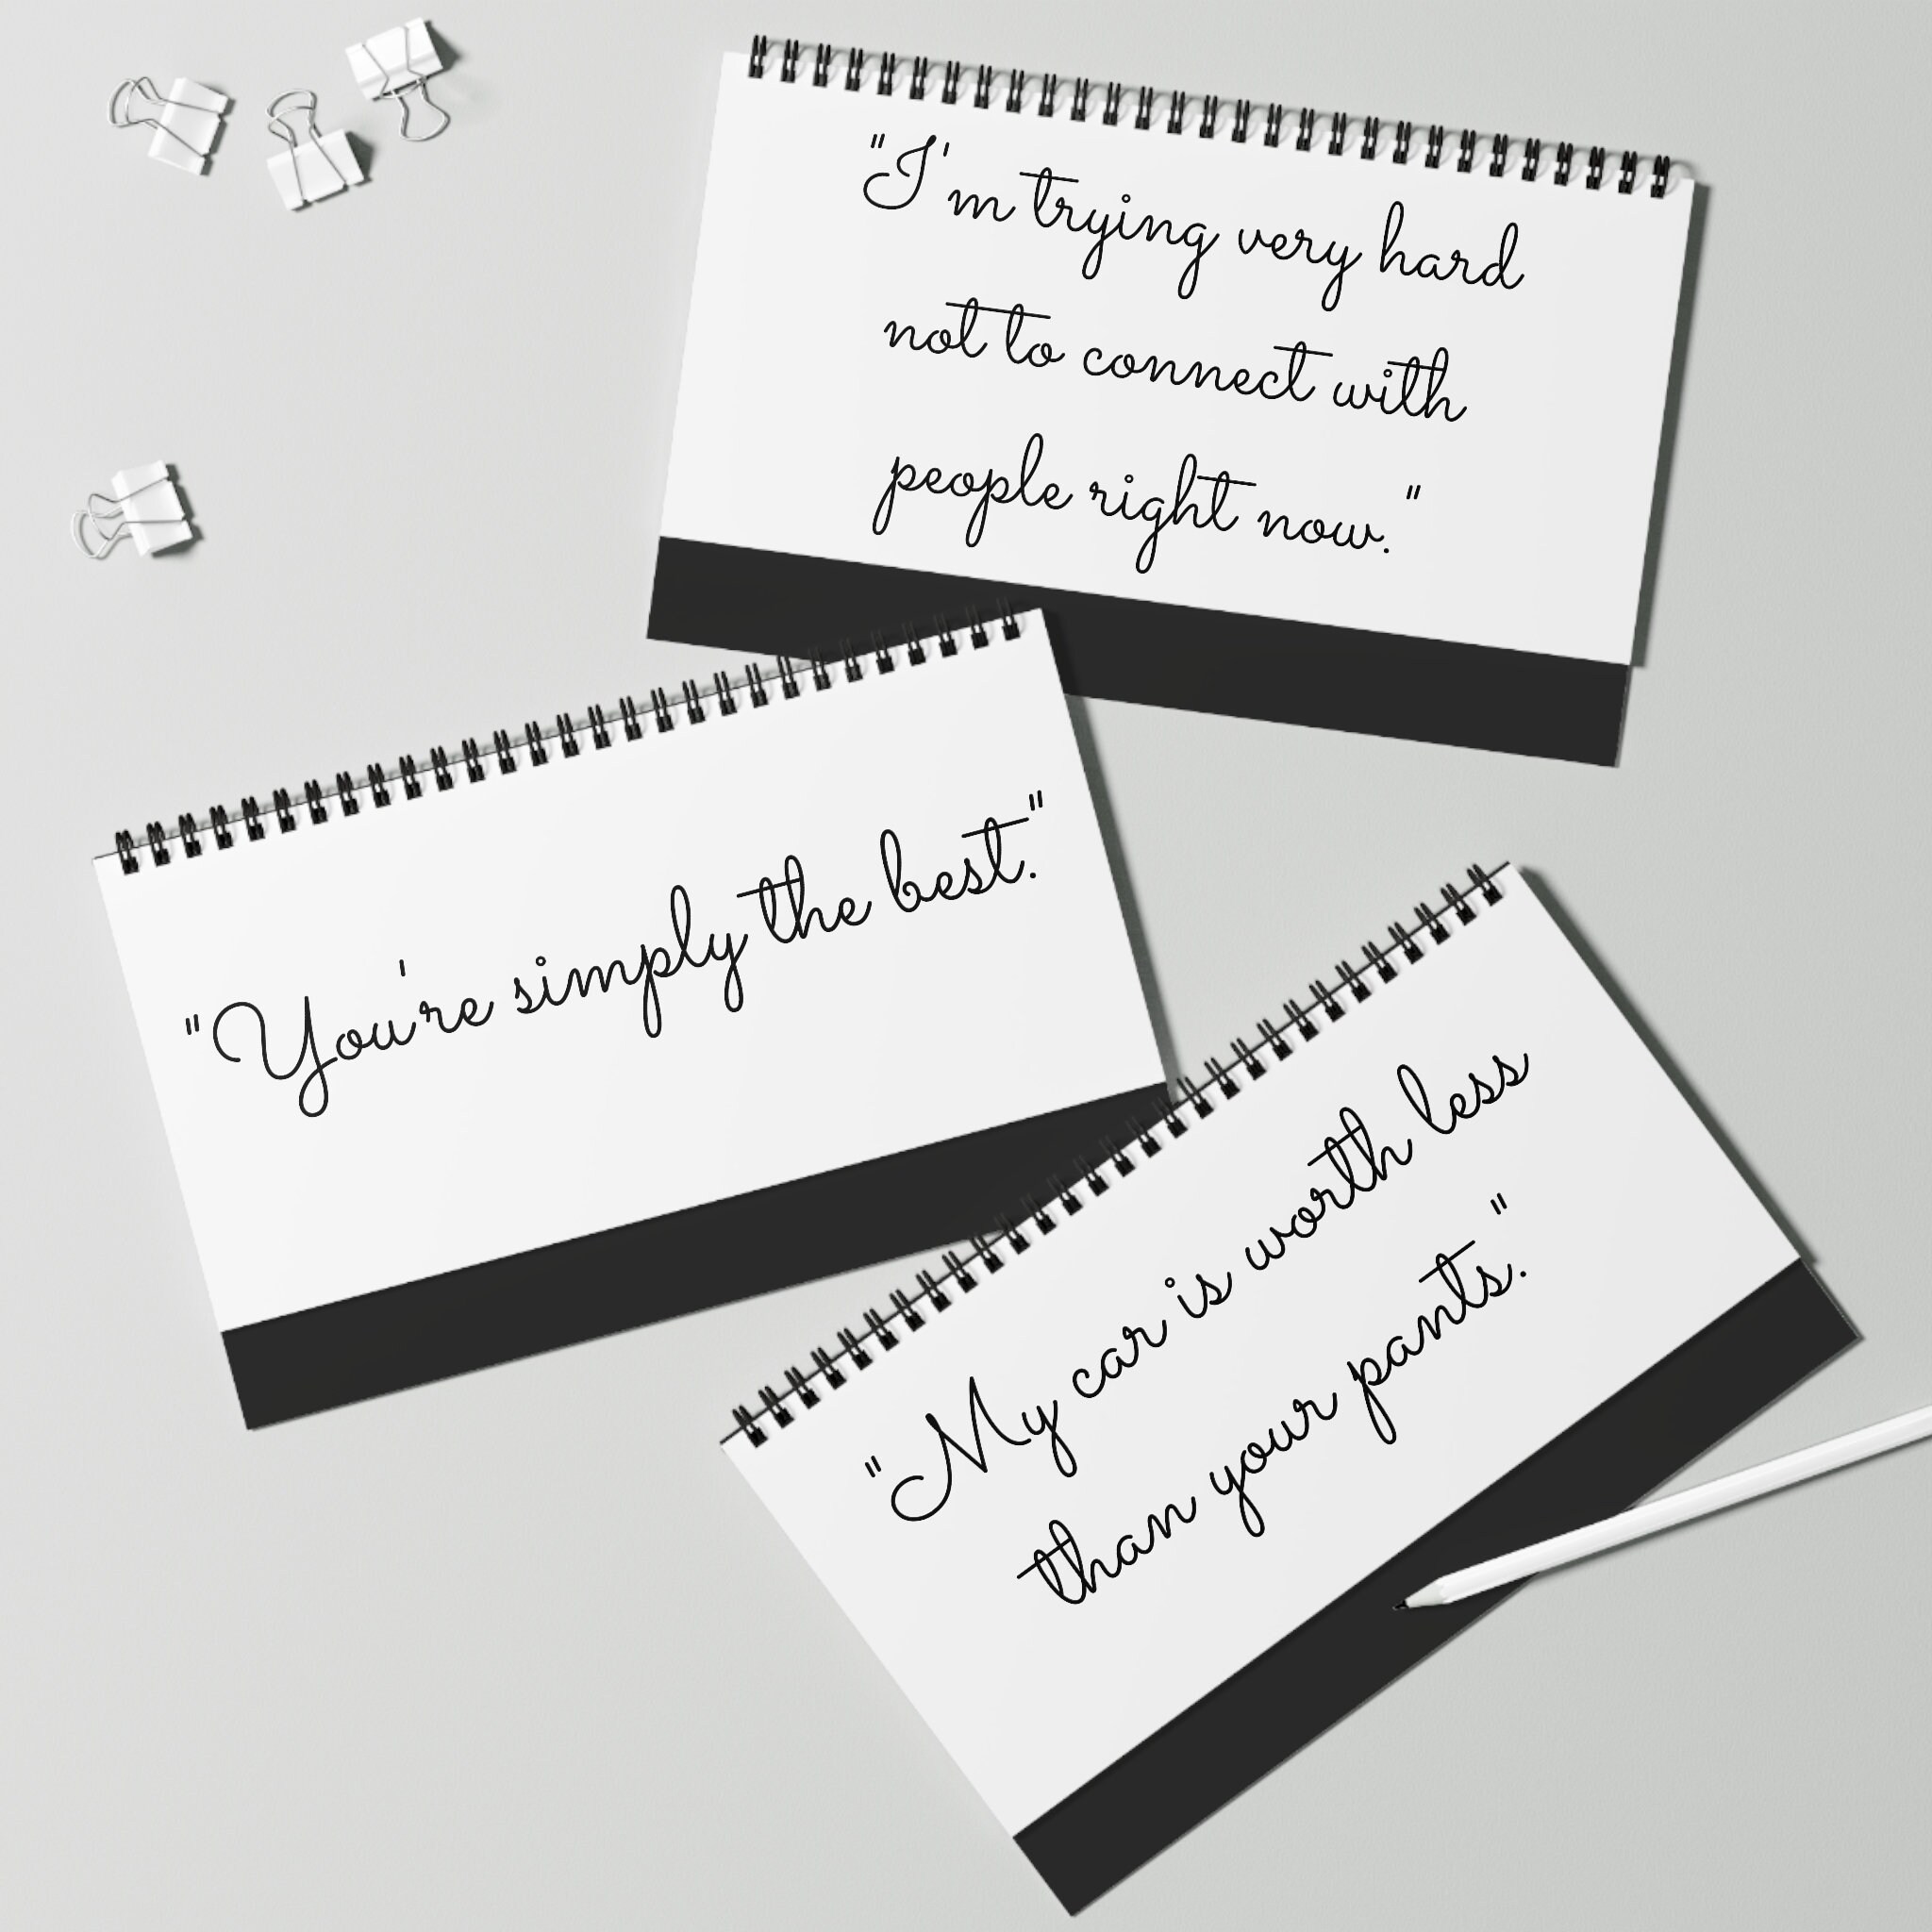 "I'm trying very hard
not to connect with
people right now."
"You're simply the best."
"My car is worth less
than your pants."